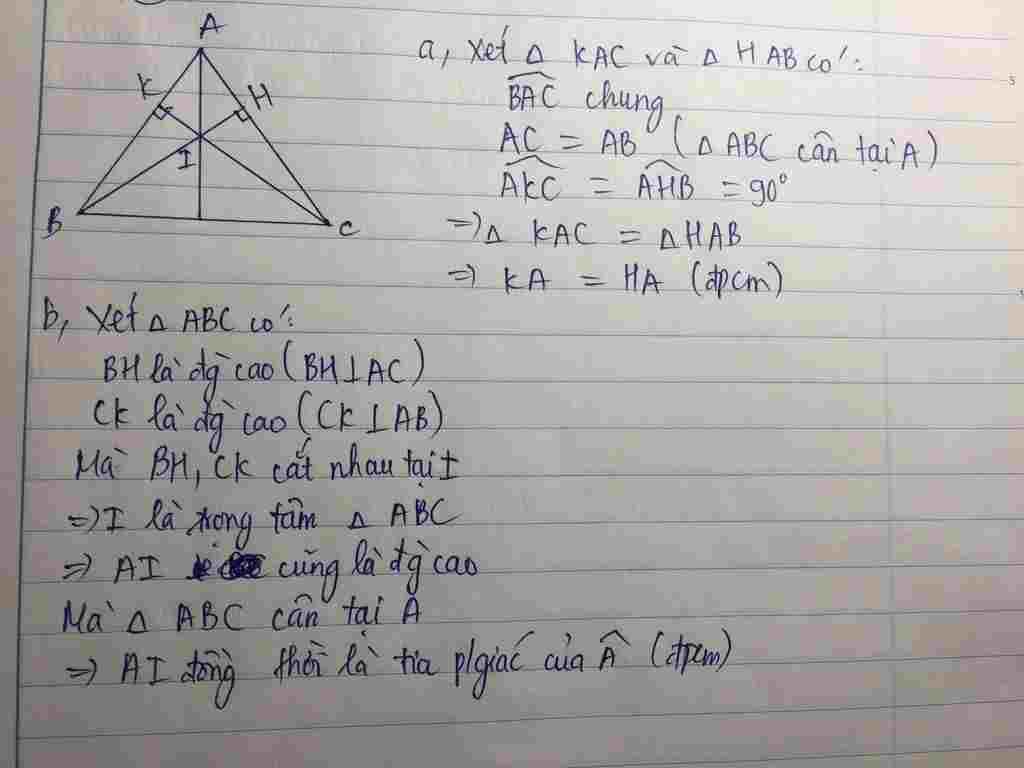 A
K
H
I
B
C
a, Xét Δ KAC và Δ HAB có:
BAC chung
AC = AB (Δ ABC cân tại A)
AKC = AHB = 90°
=> Δ KAC = Δ HAB
=> KA = HA (đpcm)
b, Xét Δ ABC có:
BH là đg cao (BH ⊥ AC)
CK là đg cao (CK ⊥ AB)
Mà BH, CK cắt nhau tại I
=> I là trọng tâm Δ ABC
=> AI cũng là đg cao
Mà Δ ABC cân tại A
=> AI đồng thời là tia p/giác của Â (đpcm)